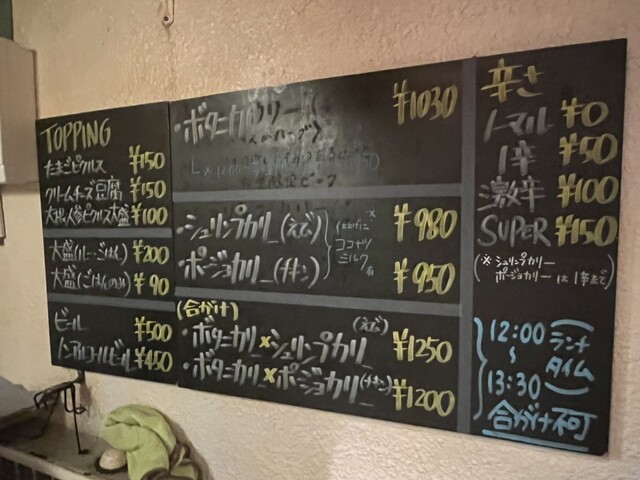 TOPPING
たまごピクルス ¥150
クリームチーズ豆腐 ¥150
大根人参ピクルス大盛 ¥100
大盛(ルー・ごはん) ¥200
大盛(ごはんのみ) ¥90
ビール ¥500
ノンアルコールビール ¥450
・ボタニカリー ¥1030
・シュリンプカリー(えび) ¥980
・ポージョカリー(チキン) ¥950
ココナツ
ミルク
有
(合がけ)
(えび)
・ボタニカリー×シュリンプカリー ¥1250
・ボタニカリー×ポージョカリー(チキン) ¥1200
辛さ
ノーマル ¥0
1辛 ¥50
激辛 ¥100
SUPER ¥150
(※シュリンプカリー
ポージョカリーは1辛まで)
12:00
〜
13:30
ランチ
タイム
合がけ不可